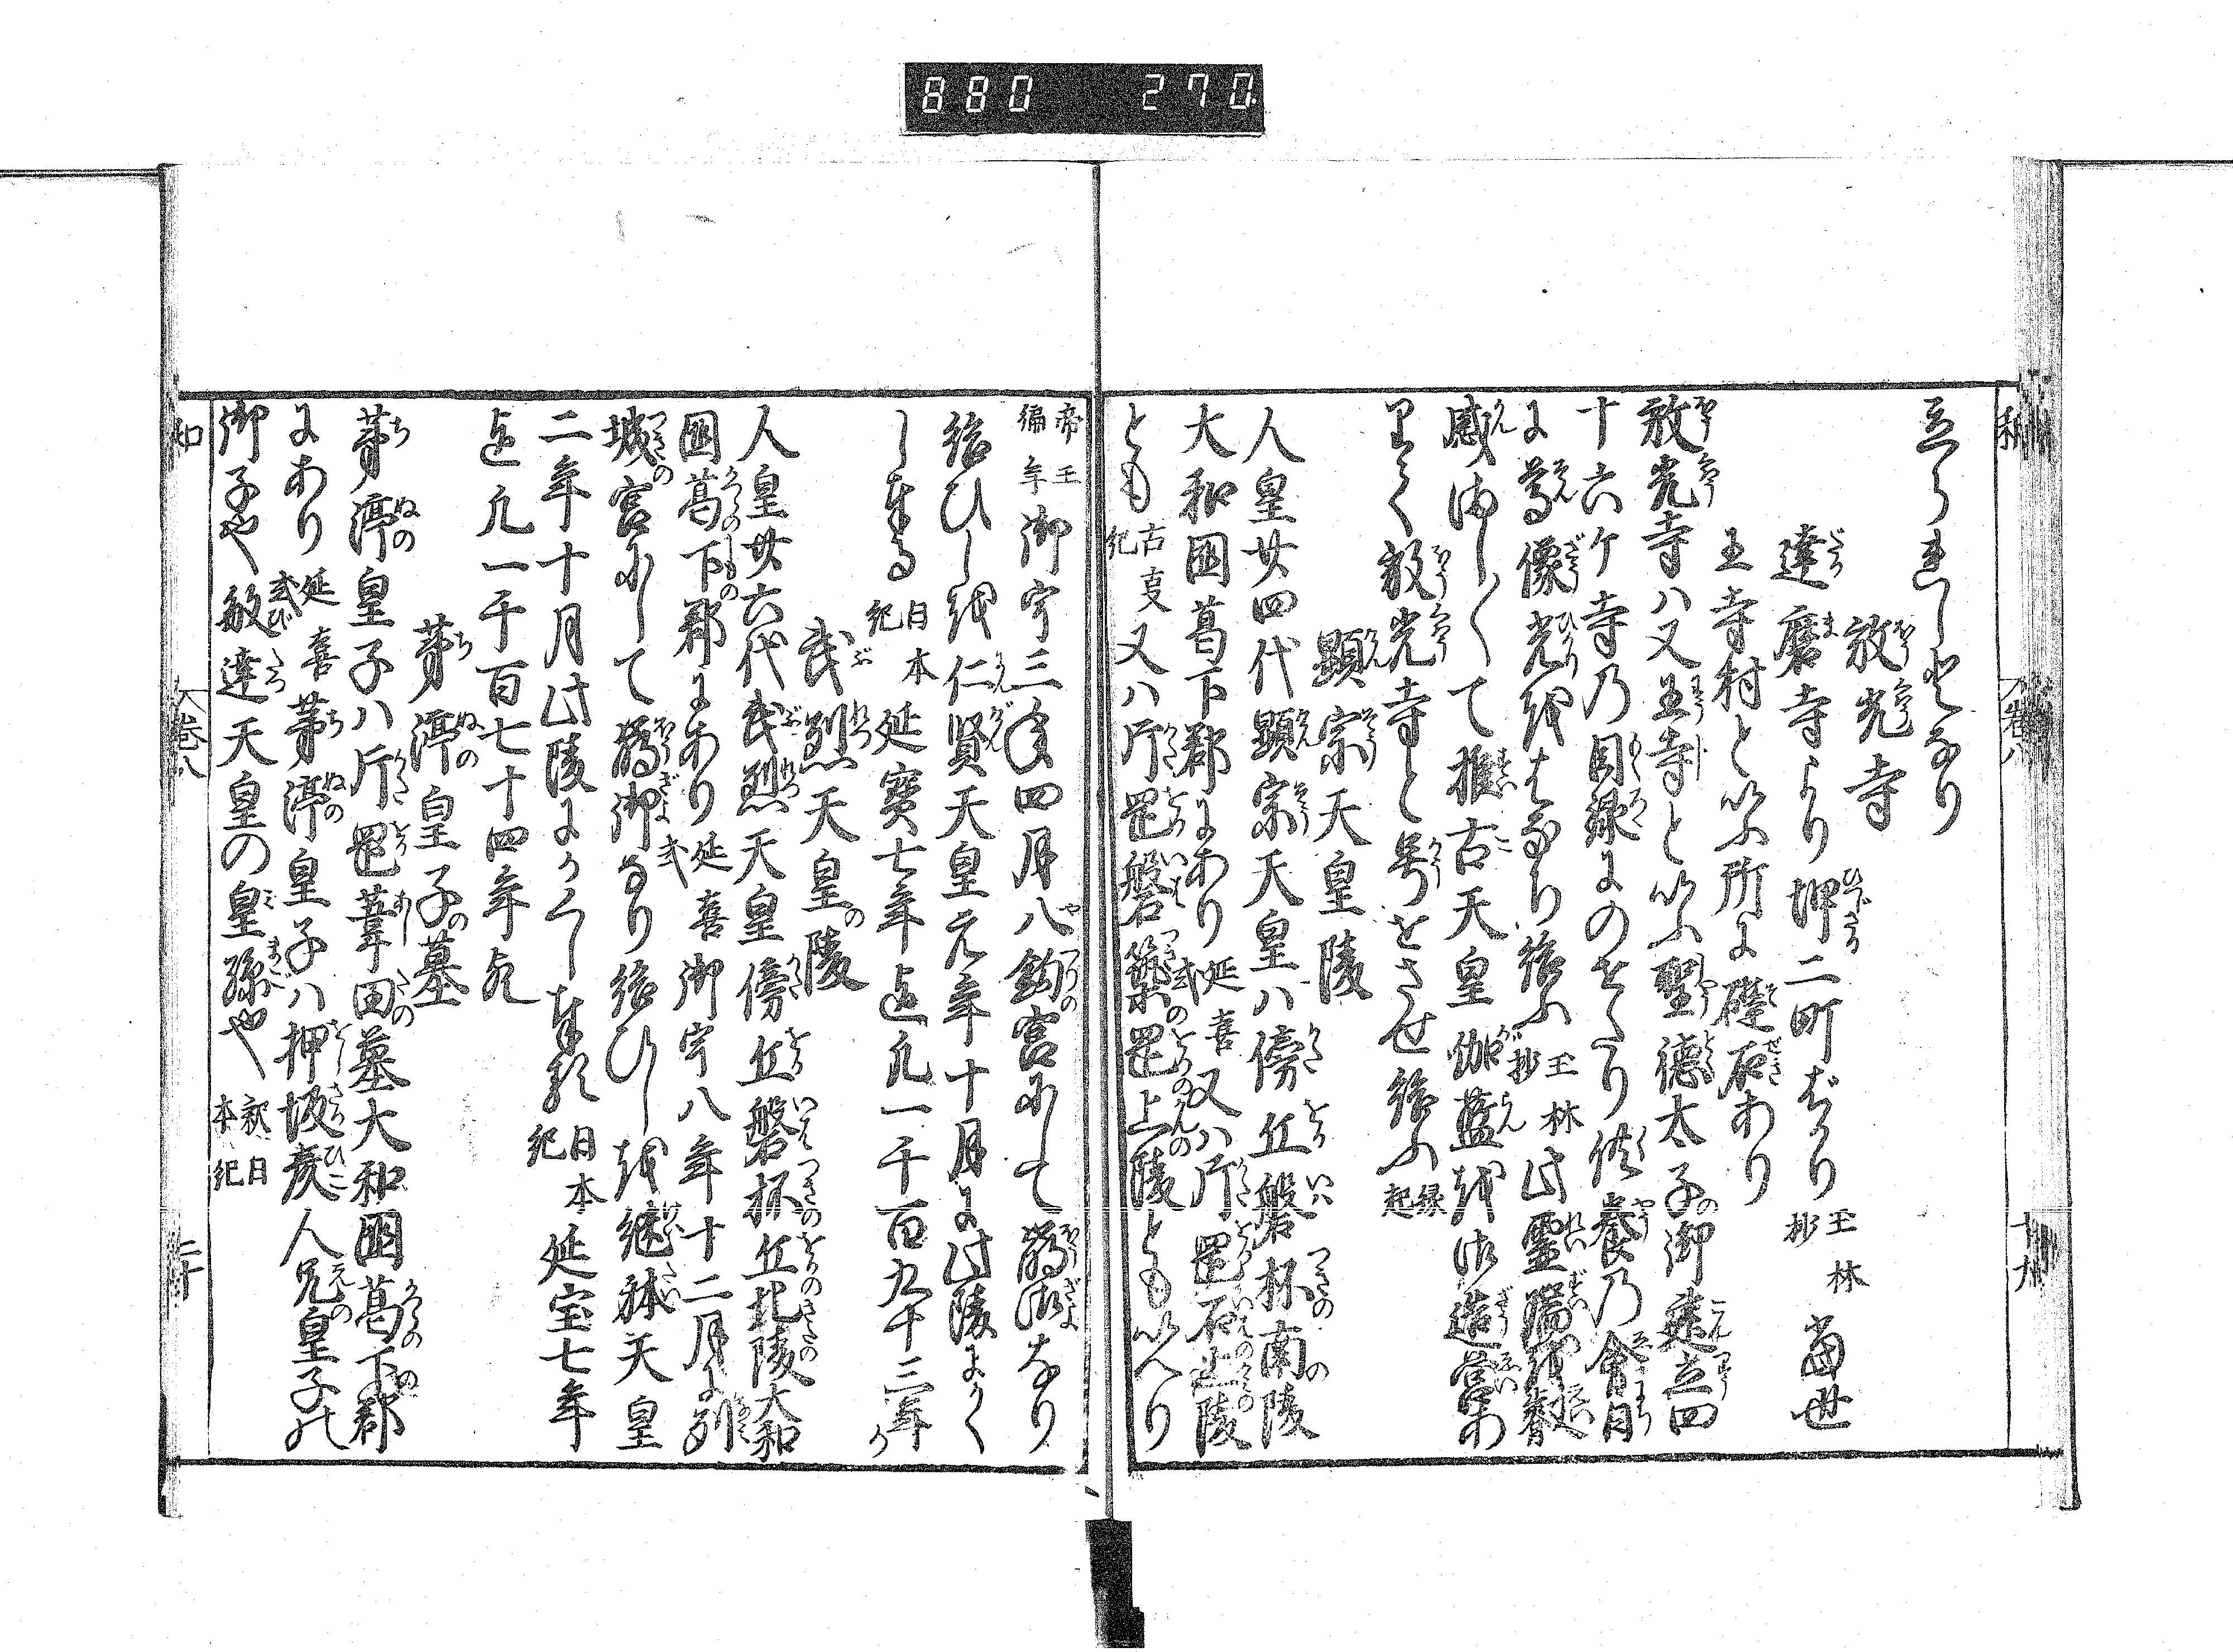 880 270
立られしとなり
放光寺
達磨寺より坤二町ばかり 玉林抄 当世
王寺村と いふ所に礎石あり
放光寺ハ又王寺と いふ聖徳太子の御建立四
十六ケ寺乃目録にのせたり供養乃会日
に尊像光を はなち給ふ 玉林抄 此霊瑞を
感ましまして推古天皇伽藍を御造営あ
りて放光寺と号せさせ給ふ 縁起
顕宗天皇陵
人皇廿四代顕宗天皇ハ傍丘磐杯南陵
大和国葛下郡にあり 延喜式 又ハ片罡石坏陵
とも 古事紀 又ハ片罡磐築罡上陵ともいへり
帝王編年 御宇三年四月八釣宮にして崩御なり
給ひしを仁賢天皇元年十月に此陵にかく
し奉る 日本紀 延寶七年迄凡一千百九十三年か
武烈天皇の陵
人皇廿六代武烈天皇傍丘磐杯丘北陵大和
国葛下郡にあり 延喜式 御宇八年十二月に列
城宮にして崩御なり給ひしを継体天皇
二年十月此陵にかくし奉る 日本紀 延宝七年
迄凡一千百七十四年歟
茅渟皇子の墓
茅渟皇子ハ片罡葦田墓大和国葛下郡
にあり 延喜式 茅渟皇子ハ押坂彦人兄皇子の
御子也敏達天皇の皇孫也 釈日本紀
和 卷八 十九
和 卷八 二十